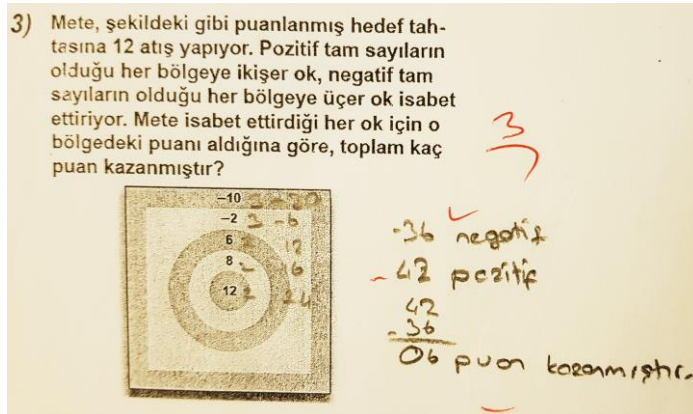 3) Mete, şekildeki gibi puanlanmış hedef tah-
tasına 12 atış yapıyor. Pozitif tam sayıların
olduğu her bölgeye ikişer ok, negatif tam
sayıların olduğu her bölgeye üçer ok isabet
ettiriyor. Mete isabet ettirdiği her ok için o
bölgedeki puanı aldığına göre, toplam kaç
puan kazanmıştır?
3
-10 3 -30
-2 3 -6
6 2 12
8 2 16
12 2 24
-36 negatif
- 42 pozitif
42
- 36
06 puan kazanmıştır.